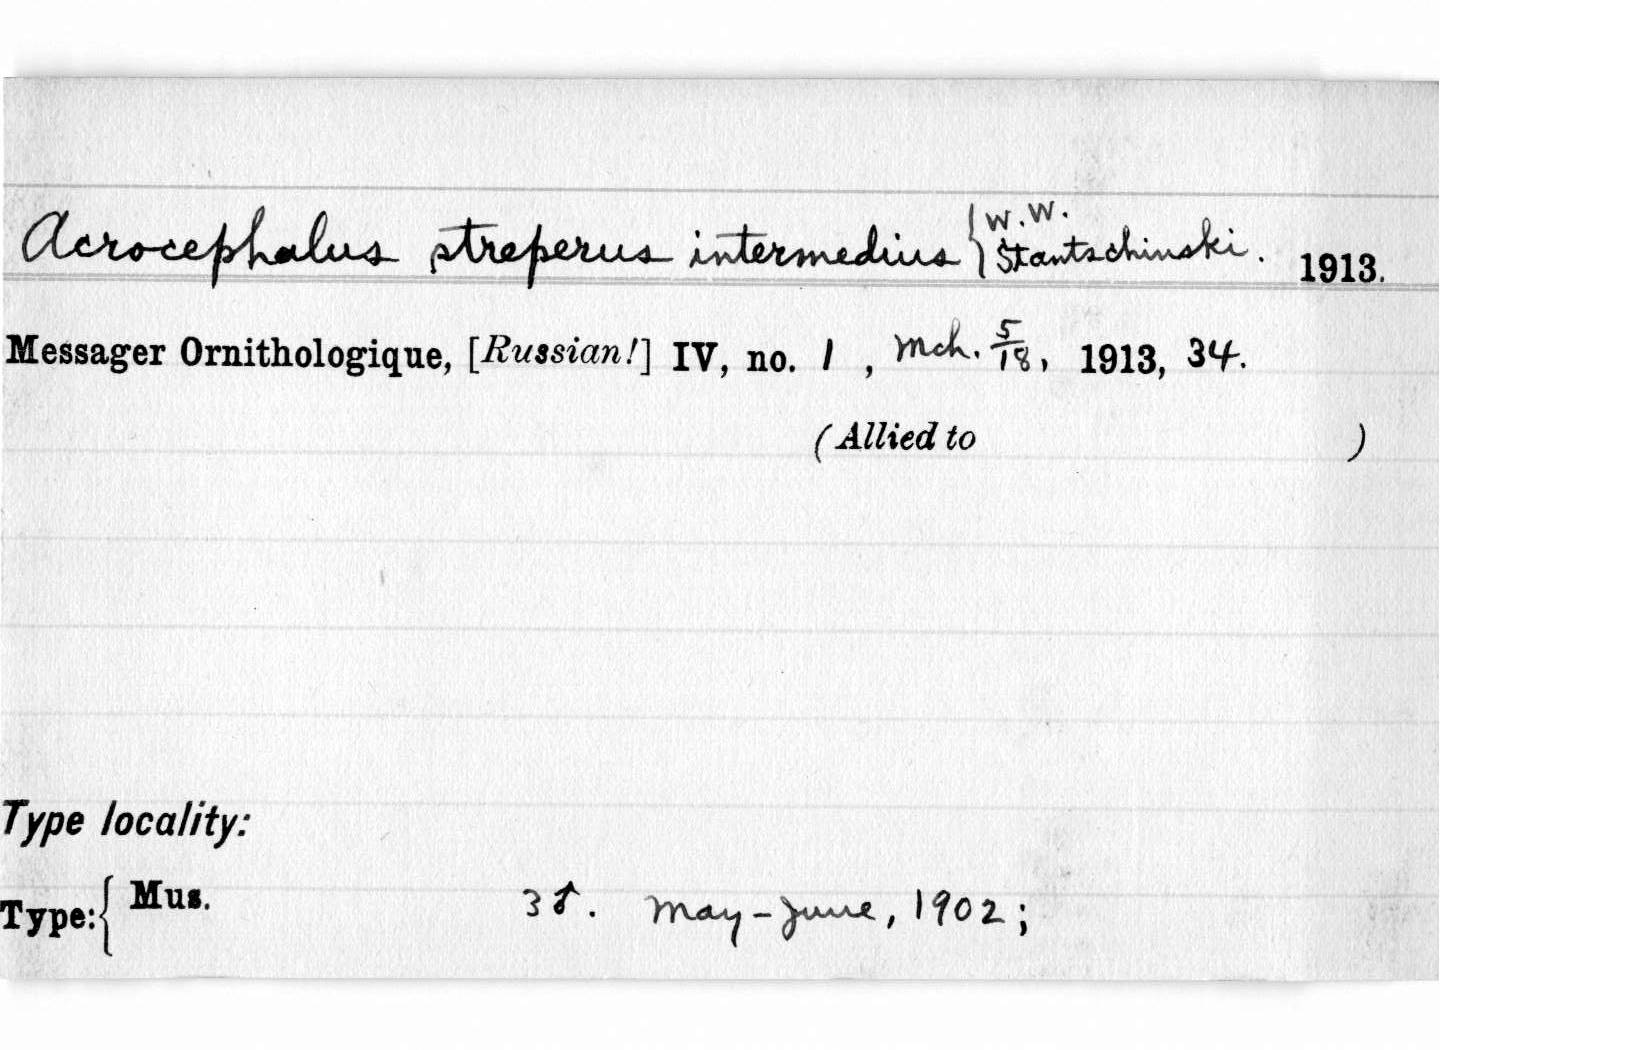 Acrocephalus streperus intermedius { W. W. Stantschinski. 1913.
Messager Ornithologique, [Russian!] IV, no. 1, Mch. 5/18, 1913, 34.
(Allied to )
Type locality:
Type: { Mus. 3♂. May-June, 1902;